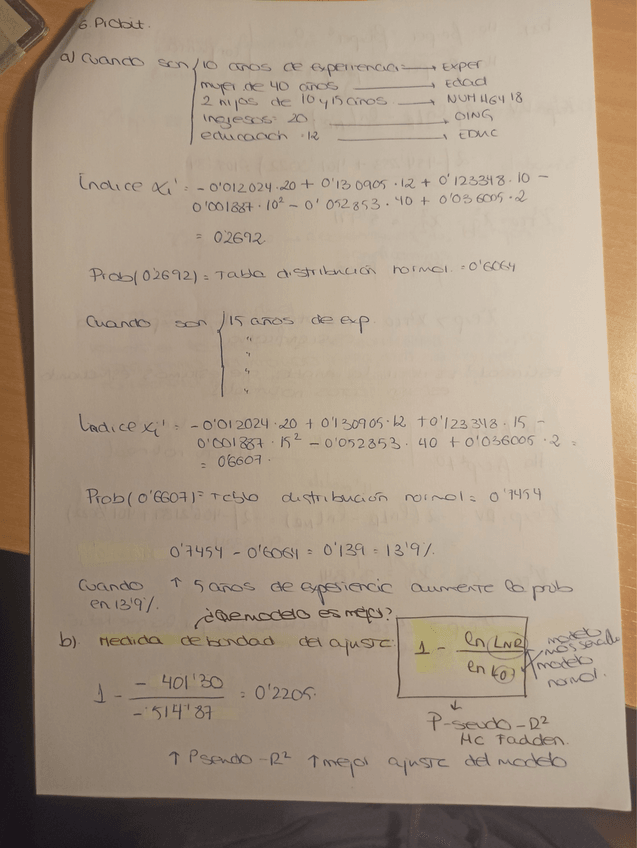 6. Picbit.
a) Cuando son 10 años de experiencia → EXPER
mujer de 40 años → Edad
2 hijos de 10 y 15 años → NUM H6418
ingresos: 20 → OING
educación · 12 → EDUC
Índice xi' = - 0'012024 · 20 + 0'130905 · 12 + 0'123348 · 10 -
0'001887 · 10² - 0'052853 · 40 + 0'036005 · 2
= 0'2692
Prob(0'2692) = Tabla distribución normal = 0'6064
Cuando son 15 años de exp.
"
"
"
"
Índice xi' = - 0'012024 · 20 + 0'130905 · 12 + 0'123348 · 15 -
0'001887 · 15² - 0'052853 · 40 + 0'036005 · 2 =
= 0'6607.
Prob(0'6607) = Tabla distribución normal = 0'7454
0'7454 - 0'6064 = 0'139 = 13'9%
Cuando ↑ 5 años de experiencia aumente la prob
en 13'9%.
¿Que modelo es mejor?
b) Medida de bondad del ajuste:
1 - ln LNR / ln L0
modelo más sencillo
modelo normal.
1 - - 401'30 / - 514'87 = 0'2205.
P-seudo-R²
Mc Fadden.
↑ Pseudo-R² ↑ mejor ajuste del modelo